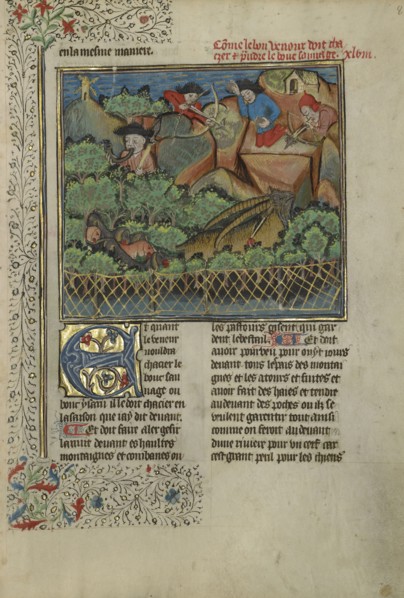 en la mesme maniere.
Cõme le bon veneur doit cha
cier et p̃ndre le bouc sauuage. xlviii.
Et quant
le veneur
vouldra
chacier le
bouc sau
uage ou
bouc ysant il le doit chacier en
la saison que iay dit deuant.
Et doit faire aler gesir
la nuit deuant es haultes
montaignes et cabanes ou
les pastours gisent qui gar
dent le bestail. Et doit
auoir pourueu pour ou vi iours
deuant tous le pais des montai
gnes et les atours et fuites et
auoir fait des haies et tendit
au deuant des roches ou ilz se
veulent garentir tout ainsi
comme on feroit au deuant
dune riuiere pour un cerf car
cest grant peril pour les chiens